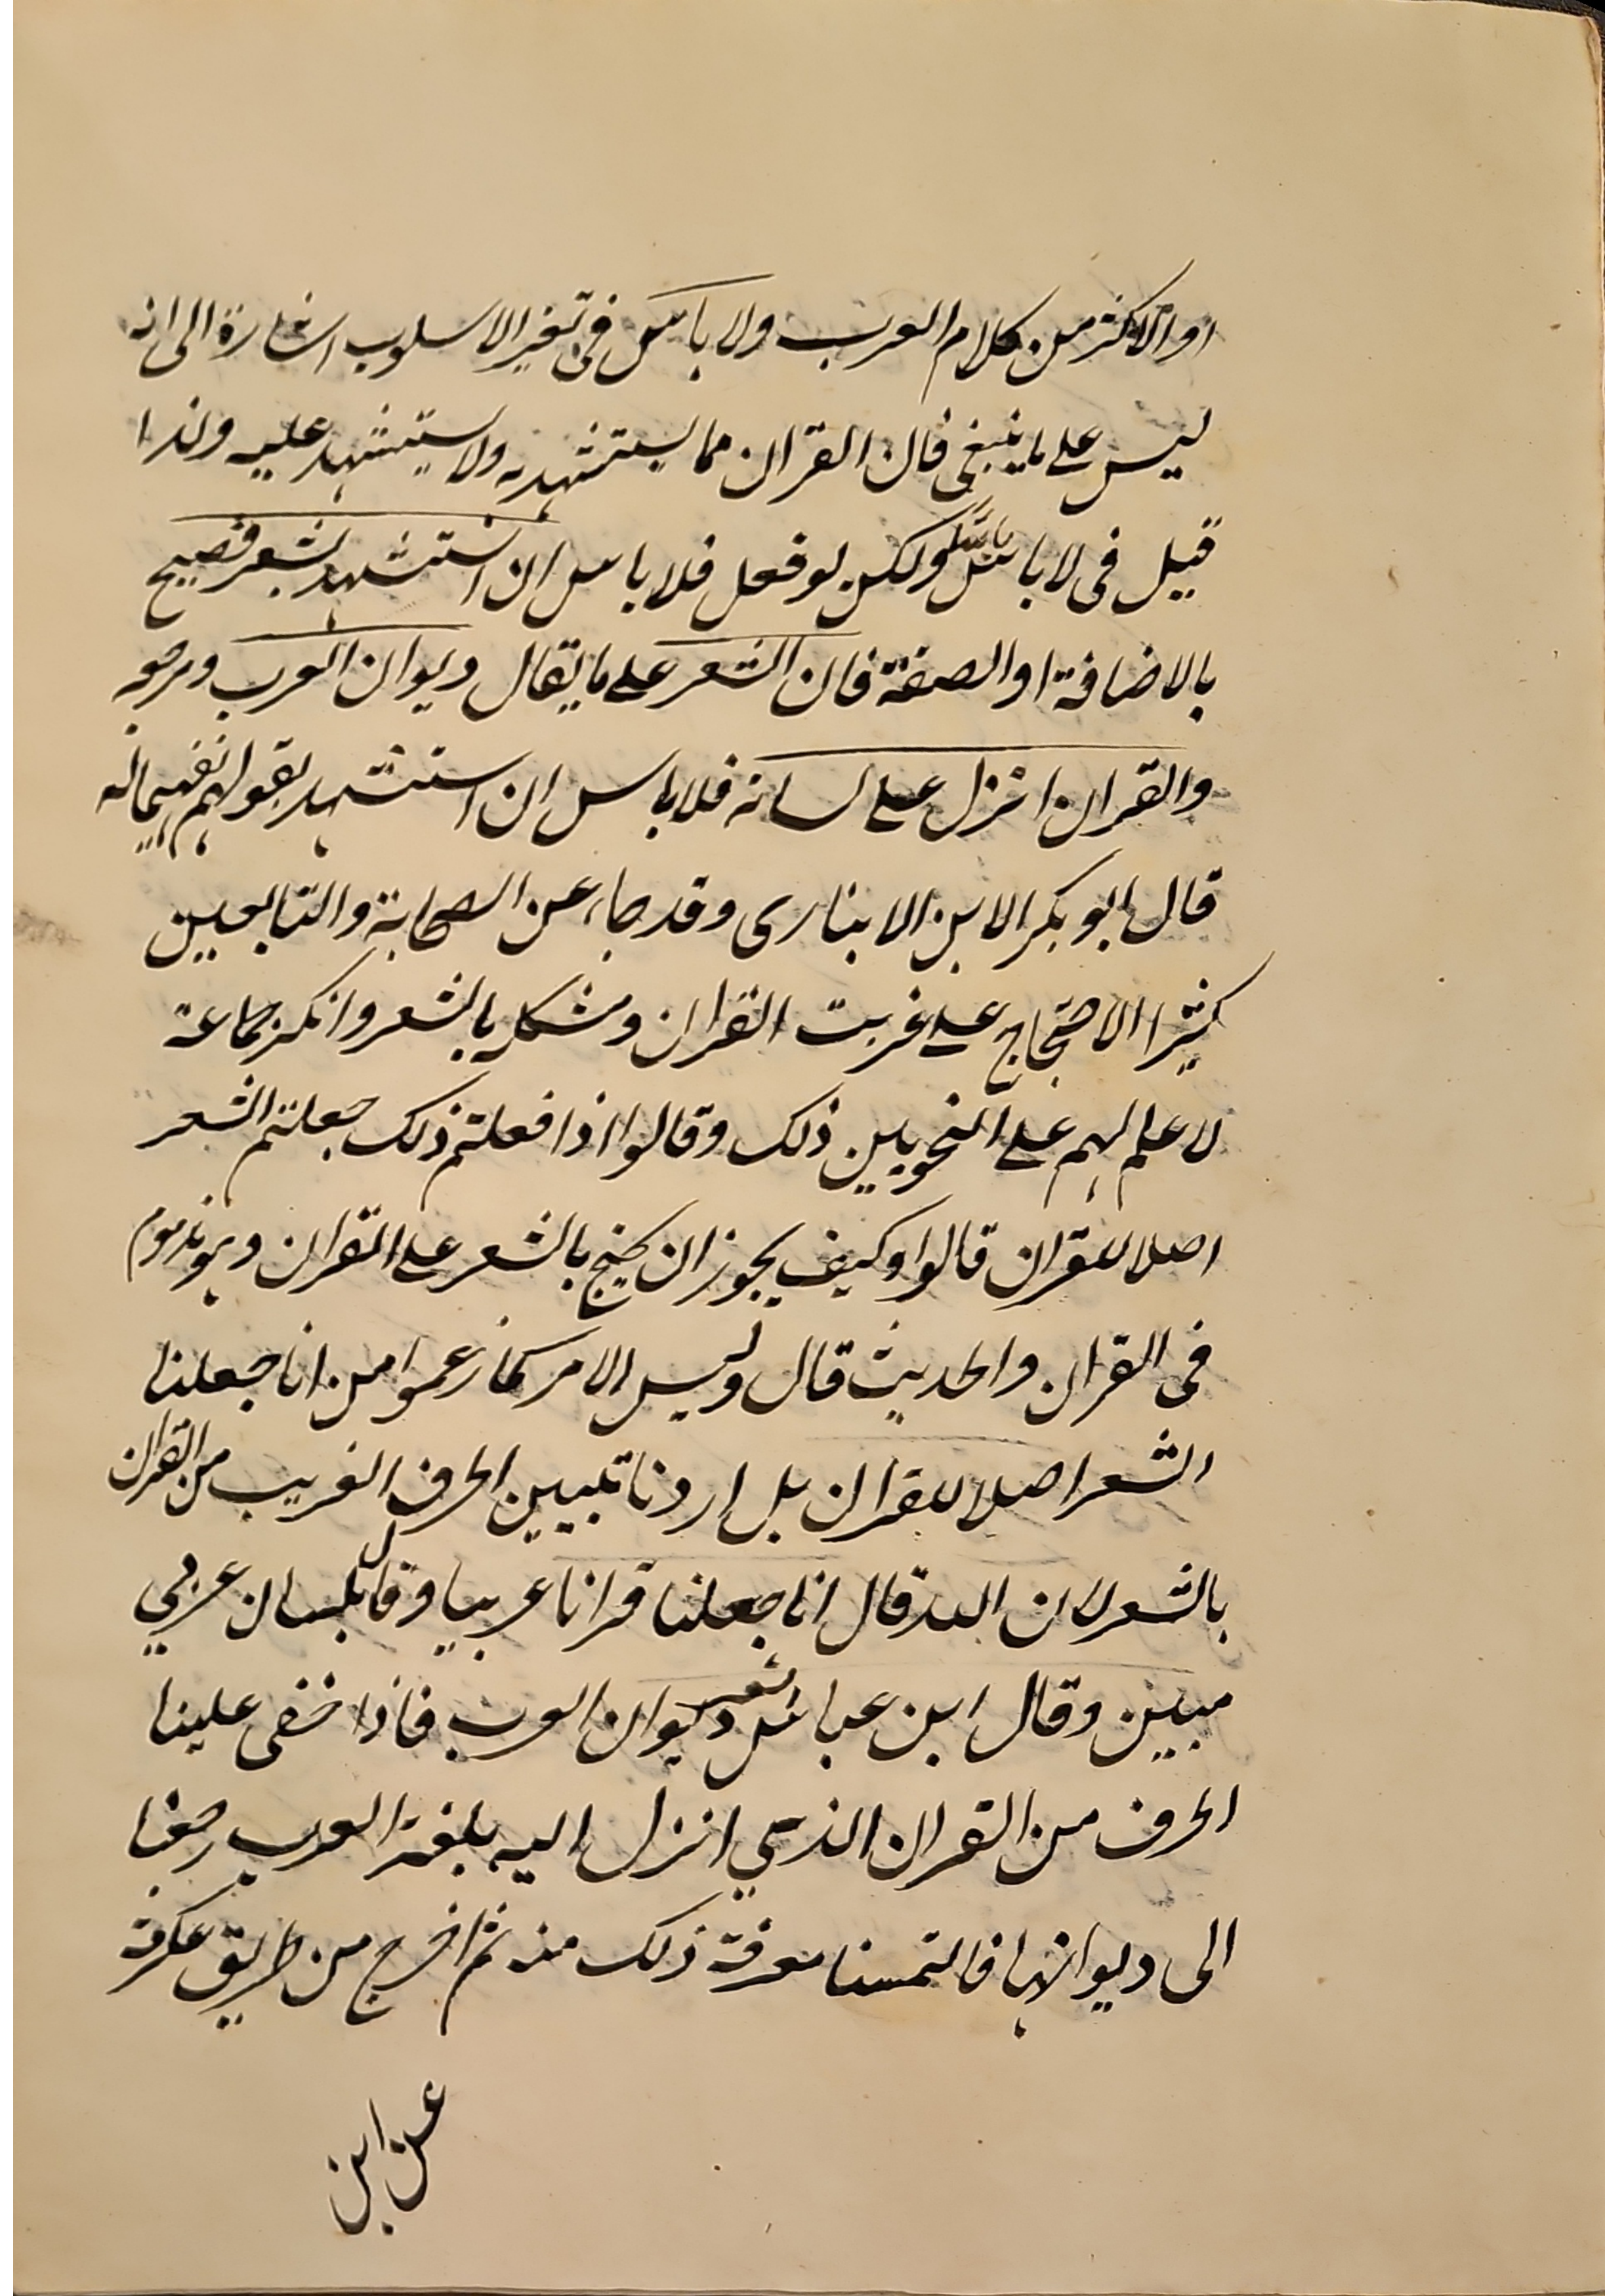 او الاكثر من كلام العرب ولا باس فى تغير الاسلوب اشارة الى انه
ليس على ما ينبغى فان القران مما يستشهد به ولا يستشهد عليه ولذا
قيل فى لا باس باس ولكن لو فعل فلا باس ان استشهد بشعر فصيح
بالاضافة او الصفة فان الشعر على ما يقال ديوان العرب ومرجعه
والقران انزل على لسانه فلا باس ان استشهد بقولهم تفهيما له
قال ابو بكر الابن الانبارى وقد جاء عن الصحابة والتابعين
كثيرا الاحتجاج على غريب القران ومشكله بالشعر وانكر جماعة
لا علم لهم على النحويين ذلك وقالوا اذا فعلتم ذلك جعلتم الشعر
اصلا للقران قالوا وكيف يجوز ان يحتج بالشعر على القران وهو مذموم
فى القران والحديث قال وليس الامر كما زعموا من انا جعلنا
الشعر اصلا للقران بل اردنا تبيين الحرف الغريب من القران
بالشعر لان الله قال انا جعلنا قرانا عربيا وقال بلسان عربي
مبين وقال ابن عباس الشعر ديوان العرب فاذا خفى علينا
الحرف من القران الذي انزل اليه بلغة العرب رجعنا
الى ديوانها فالتمسنا معرفة ذلك منه ثم اخرج من طريق عكرمة
عن ابن